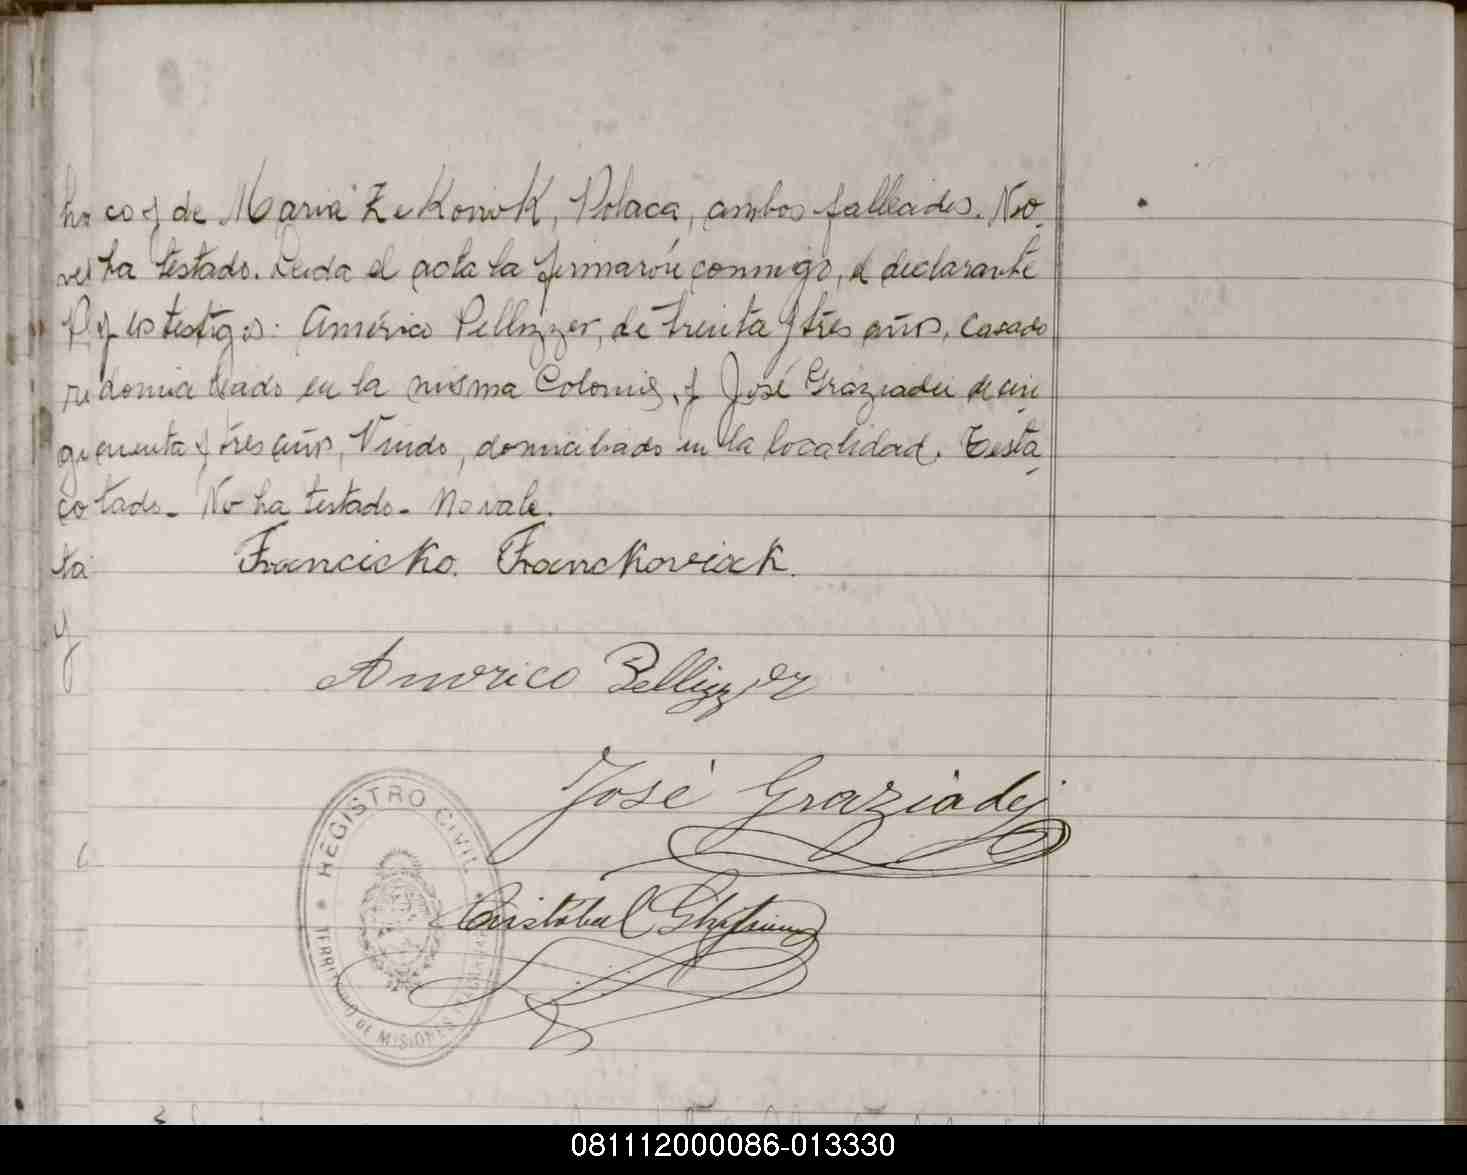 co y de Maria Zekonok, Polaca, ambos fallecidos. No
ha testado. Leida el acta la firmaron conmigo, el declarante
y los testigos: Américo Pellizzer, de treinta y tres años, casado
domiciliado en la misma Colonia, y José Graziadei de cin
cuenta y tres años, Viudo, domiciliado en la localidad. Testa
tado - No ha testado - No vale.
Francicko. Franckoviack.
Americo Pellizzer
José Graziadej
Cristóbal
REGISTRO CIVIL
TERRITORIO DE MISIONES
081112000086-013330